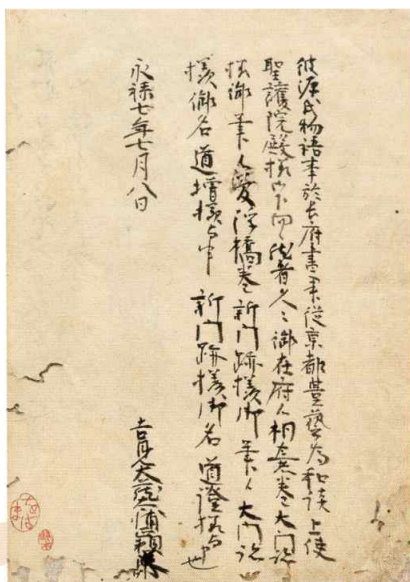 彼源氏物語事於長府書来従京都豊藝為和談上使
聖護院殿様御下向然者久々御在府人桐壺巻大門跡
様御筆人夢浮橋巻新門跡様御筆人大門跡
様御名道増様与申新門跡様御名道澄様与申也
永禄七年七月八日